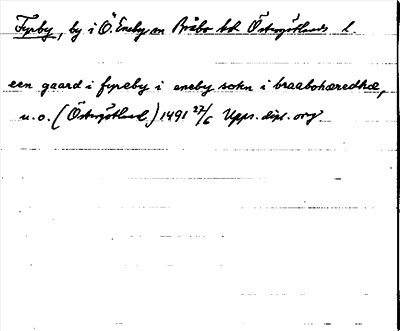 Fyrby, by i Ö. Eneby sn Bråbo hd Östergötlands l.
een gaard i fyræby i eneby sokn i braabohæredhæ,
u.o. (Östergötland) 1491 27/6 Upps. dipl. org